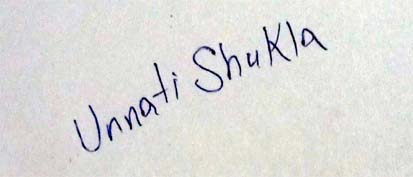 Unnati Shukla